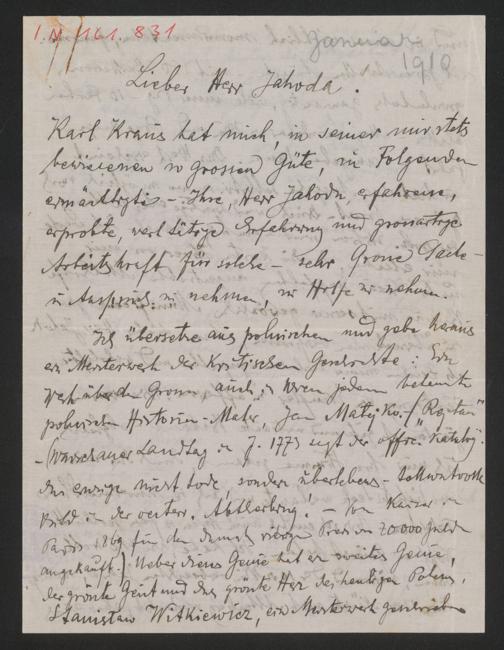 I.N. 161.831
Januar
1910
Lieber Herr Jahoda.
Karl Kraus hat mich, in seiner mir stets
bewiesenen so grossen Güte, in Folgenden
ermächtigt – Ihre, Herr Jahoda, erfahrene,
erprobte, werktätige Erfahrung und grossartige
Arbeitskraft für solche – sehr Grosse Sache –
in Anspruch zu nehmen, zu Hilfe zu nehmen.
Ich übersetze aus polnischen und gebe heraus
ein Meisterwerk der Kritischen Geschichte: Ein
Werk über den Grossen, auch in Wien jedem bekannten
polnischen Historien-Maler, Jan Matejko. ("Rejtan"
– (Warschauer Landtag im J. 1773 sagt der offic. Katalog.
das einzige nicht tode, sondern überlebens-
Bild in der Abtheilung! – Vom Kaiser in
Paris 1869 für den damals riesigen Preis von 20000 Gulden
angekauft.) Ueber dieses Genie hat ein zweites Genie,
der grösste Geist und das grösste Herz des heutigen Polens,
Stanisław Witkiewicz, ein Meisterwerk geschrieben